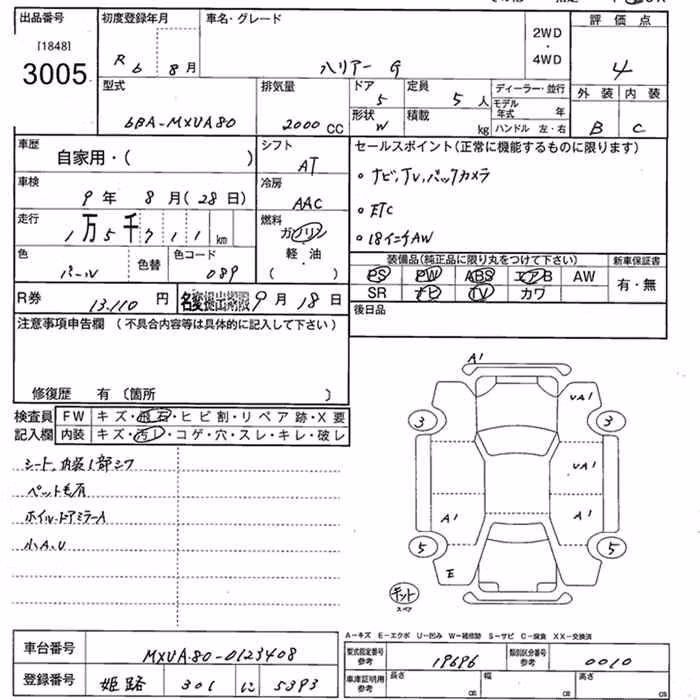 出品番号 初度登録年月 車名・グレード 2WD・4WD 評価点
[1848]
3005 R6 8月 ハリアー G 4
型式 排気量 ドア 5 定員 5人 ディーラー・並行 外装 内装
モデル年式 年
6BA-MXUA80 2000 CC 形状 W 積載 kg ハンドル 左・右 B C
車歴 自家用・( ) シフト AT セールスポイント(正常に機能するものに限ります)
車検 9年 8月(28日) 冷房 AAC ・ナビ,TV,バックカメラ
走行 1万5千711km 燃料 ガソリン ・ETC
・18インチAW
色 パール 色替 色コード 089 軽・油 ( )
装備品(純正品に限り丸をつけて下さい) 新車保証書
PS PW ABS エアB AW 有・無
SR ナビ TV カワ
R券 13.110円 名変提出期限 9月18日 後日品
注意事項申告欄 (不具合内容等は具体的に記入して下さい)
修復歴 有 〔箇所 〕
検査員記入欄 FW キズ・飛石・ヒビ割・リペア跡・X要
内装 キズ・汚レ・コゲ・穴・スレ・キレ・破レ
シート,内装1部シワ
ペット毛有
ホイル.ドアミラーA
小A.U
A1
UA1
3 3
UA1
A1 A1
5 5
E
スペア
A-キズ E-エクボ U-凹み W-補修跡 S-サビ C-腐食 XX-交換済
車台番号 MXUA80-0123408 型式指定番号 参考 19696 類別区分番号 参考 0010
登録番号 姫路 301 に 5393 車庫証明用 参考 長さ cm 幅 cm 高さ cm